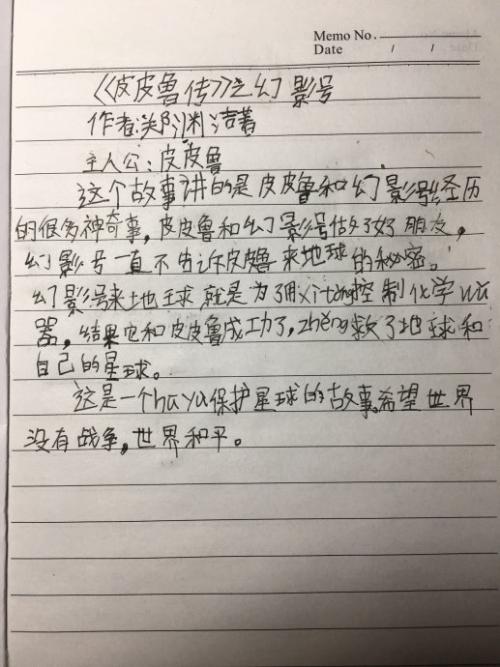 Memo No.
Date / /
《皮皮鲁传》之幻影号
作者:郑渊洁著
主人公:皮皮鲁
这个故事讲的是皮皮鲁和幻影号经历
的很多神奇事,皮皮鲁和幻影号做了好朋友,
幻影号一直不告诉皮皮鲁来地球的秘密。
幻影号来地球就是为了用xitong控制化学wu
器,结果它和皮皮鲁成功了,zhěng救了地球和
自己的星球。
这是一个huyu保护星球的故事,希望世界
没有战争,世界和平。